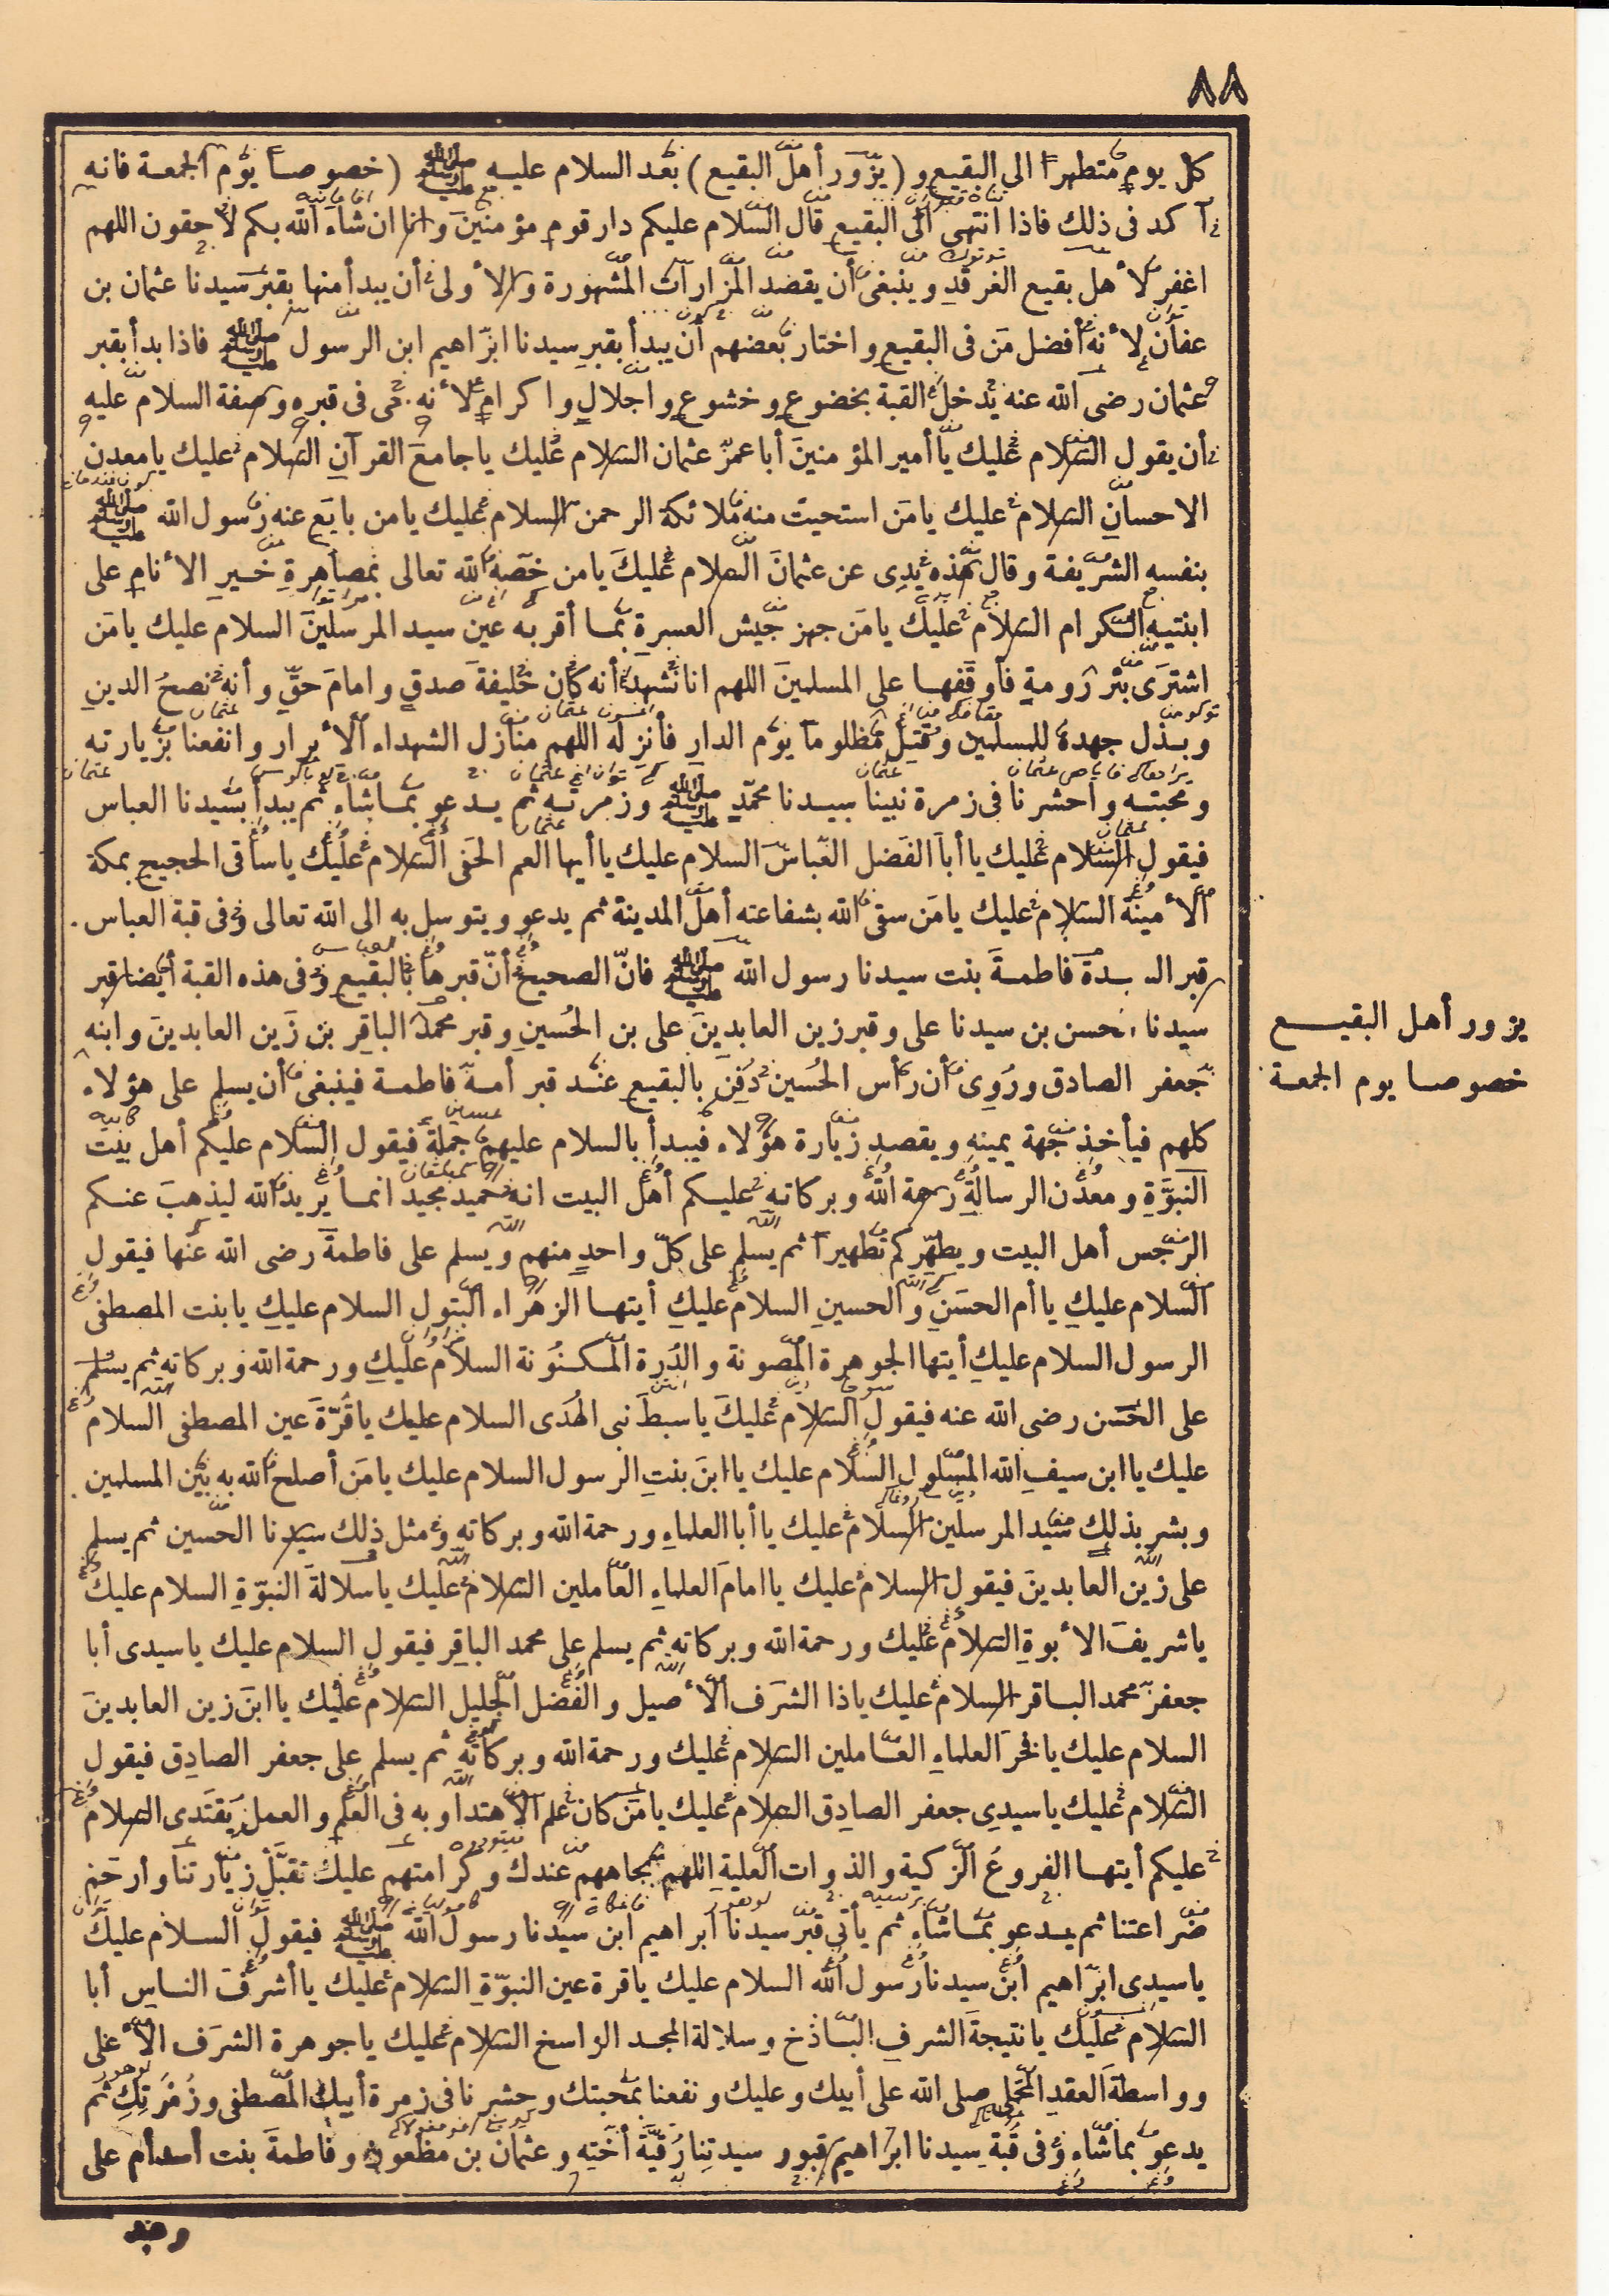 ٨٨
كل يوم متطهرا الى البقيع و (يزور أهل البقيع) بعد السلام عليه ﷺ (خصوصا يوم الجمعة فانه
آكد فى ذلك فاذا انتهى الى البقيع قال السلام عليكم دار قوم مؤمنين وانا ان شاء الله بكم لاحقون اللهم
اغفر لأهل بقيع الغرقد وينبغى أن يقصد المزارات المشهورة والأولى أن يبدأ منها بقبر سيدنا عثمان بن
عفان لأنه أفضل من فى البقيع واختار بعضهم أن يبدأ بقبر سيدنا ابراهيم ابن الرسول ﷺ فاذا بدأ بقبر
عثمان رضى الله عنه يدخل القبة بخضوع وخشوع واجلال واكرام لأنه حى فى قبره وصفة السلام عليه
أن يقول السلام عليك يا أمير المؤمنين أبا عمر عثمان السلام عليك يا جامع القرآن السلام عليك يا معدن
الاحسان السلام عليك يا من استحيت منه ملائكة الرحمن السلام عليك يا من بايع عنه رسول الله ﷺ
بنفسه الشريفة وقال هذه يدى عن عثمان السلام عليك يا من خصه الله تعالى بمصاهرة خير الأنام على
ابنتيه الكرام السلام عليك يا من جهز جيش العسرة بما أقر به عين سيد المرسلين السلام عليك يا من
اشترى بئر رومة فأوقفها على المسلمين اللهم انا نشهد أنه كان خليفة صدق وامام حق وأنه نصح الدين
وبذل جهده للمسلمين وقتل مظلوما يوم الدار فأنزله اللهم منازل الشهداء الأبرار وانفعنا بزيارته
ومحبته واحشرنا فى زمرة نبينا سيدنا محمد ﷺ وزمرته ثم يدعو بما شاء ثم يبدأ بسيدنا العباس
فيقول السلام عليك يا أبا الفضل العباس السلام عليك يا أيها العم الحفى السلام عليك يا ساقى الحجيج بمكة
الأمينة السلام عليك يا من سقى الله بشفاعته أهل المدينة ثم يدعو ويتوسل به الى الله تعالى وفى قبة العباس
قبر السيدة فاطمة بنت سيدنا رسول الله ﷺ فان الصحيح أن قبرها بالبقيع وفى هذه القبة أيضا قبر
سيدنا الحسن بن سيدنا على وقبر زين العابدين على بن الحسين وقبر محمد الباقر بن زين العابدين وابنه
جعفر الصادق وروى أن رأس الحسين دفن بالبقيع عند قبر أمه فاطمة فينبغى أن يسلم على هؤلاء
كلهم فيأخذ جهة يمينه ويقصد زيارة هؤلاء فيبدأ بالسلام عليهم جملة فيقول السلام عليكم أهل بيت
النبوة ومعدن الرسالة رحمة الله وبركاته عليكم أهل البيت انه حميد مجيد انما يريد الله ليذهب عنكم
الرجس أهل البيت ويطهركم تطهيرا ثم يسلم على كل واحد منهم ويسلم على فاطمة رضى الله عنها فيقول
السلام عليك يا أم الحسن والحسين السلام عليك أيتها الزهراء البتول السلام عليك يا بنت المصطفى
الرسول السلام عليك أيتها الجوهرة المصونة والدرة المكنونة السلام عليك ورحمة الله وبركاته ثم يسلم
على الحسن رضى الله عنه فيقول السلام عليك يا سبط نبى الهدى السلام عليك يا قرة عين المصطفى السلام
عليك يا ابن سيف الله المسلول السلام عليك يا ابن بنت الرسول السلام عليك يا من أصلح الله به بين المسلمين
وبشر بذلك سيد المرسلين السلام عليك يا أبا العلماء ورحمة الله وبركاته ومثل ذلك سيدنا الحسين ثم يسلم
على زين العابدين فيقول السلام عليك يا امام العلماء العاملين السلام عليك يا سلالة النبوة السلام عليك
يا شريف الأبوة السلام عليك ورحمة الله وبركاته ثم يسلم على محمد الباقر فيقول السلام عليك يا سيدى أبا
جعفر محمد الباقر السلام عليك يا ذا الشرف الأصيل والفضل الجليل السلام عليك يا ابن زين العابدين
السلام عليك يا فخر العلماء العاملين السلام عليك ورحمة الله وبركاته ثم يسلم على جعفر الصادق فيقول
السلام عليك يا سيدى جعفر الصادق السلام عليك يا من كان علم الاهتدا وبه فى العلم والعمل يقتدى السلام
عليكم أيتها الفروع الزكية والذوات العلية اللهم بجاههم عندك وكرامتهم عليك تقبل زيارتنا وارحم
ضراعتنا ثم يدعو بما شاء ثم يأتى قبر سيدنا ابراهيم ابن سيدنا رسول الله ﷺ فيقول السلام عليك
يا سيدى ابراهيم ابن سيدنا رسول الله السلام عليك يا قرة عين النبوة السلام عليك يا أشرف الناس أبا
السلام عليك يا نتيجة الشرف الباذخ وسلالة المجد الراسخ السلام عليك يا جوهرة الشرف الأعلى
وواسطة العقد المحلى صلى الله على أبيك وعليك ونفعنا بمحبتك وحشرنا فى زمرة أبيك المصطفى وزمرتك ثم
يدعو بما شاء وفى قبة سيدنا ابراهيم قبور سيدتنا رقية أخته وعثمان بن مظعون وفاطمة بنت أسد أم على
يزور أهل البقيع
خصوصا يوم الجمعة